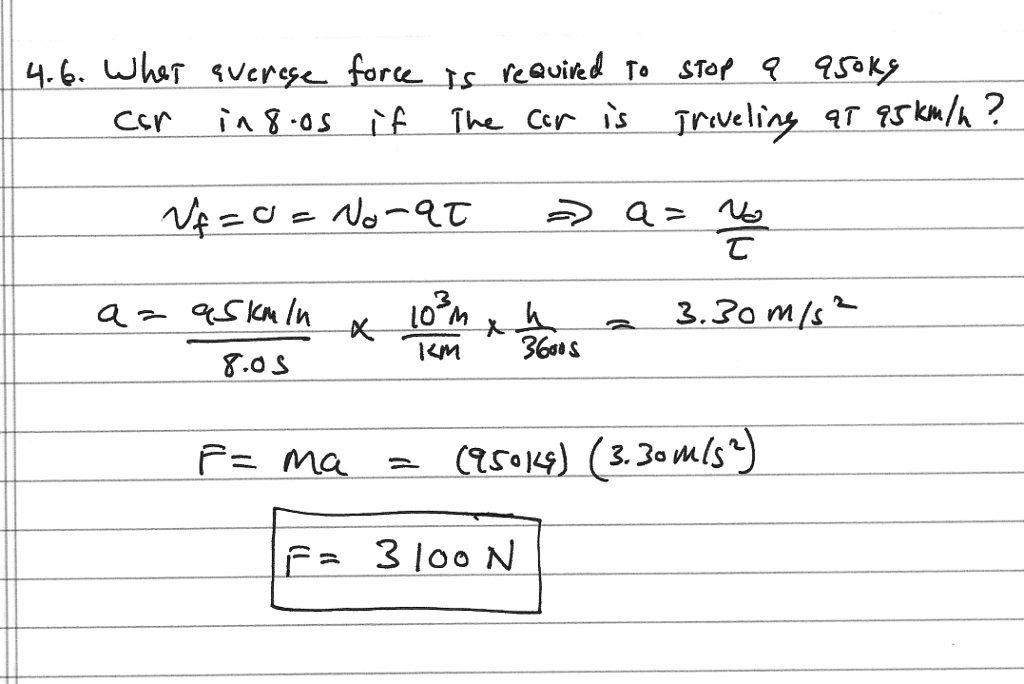 4.6. What average force is required to stop a 950kg
car in 8.0s if the car is traveling at 95km/h?
Vf = 0 = V₀ - at ⇒ a = V₀/t
a = 95km/h / 8.0s × 10³m/km × h/3600s = 3.30 m/s²
F = ma = (950kg) (3.30m/s²)
F = 3100 N